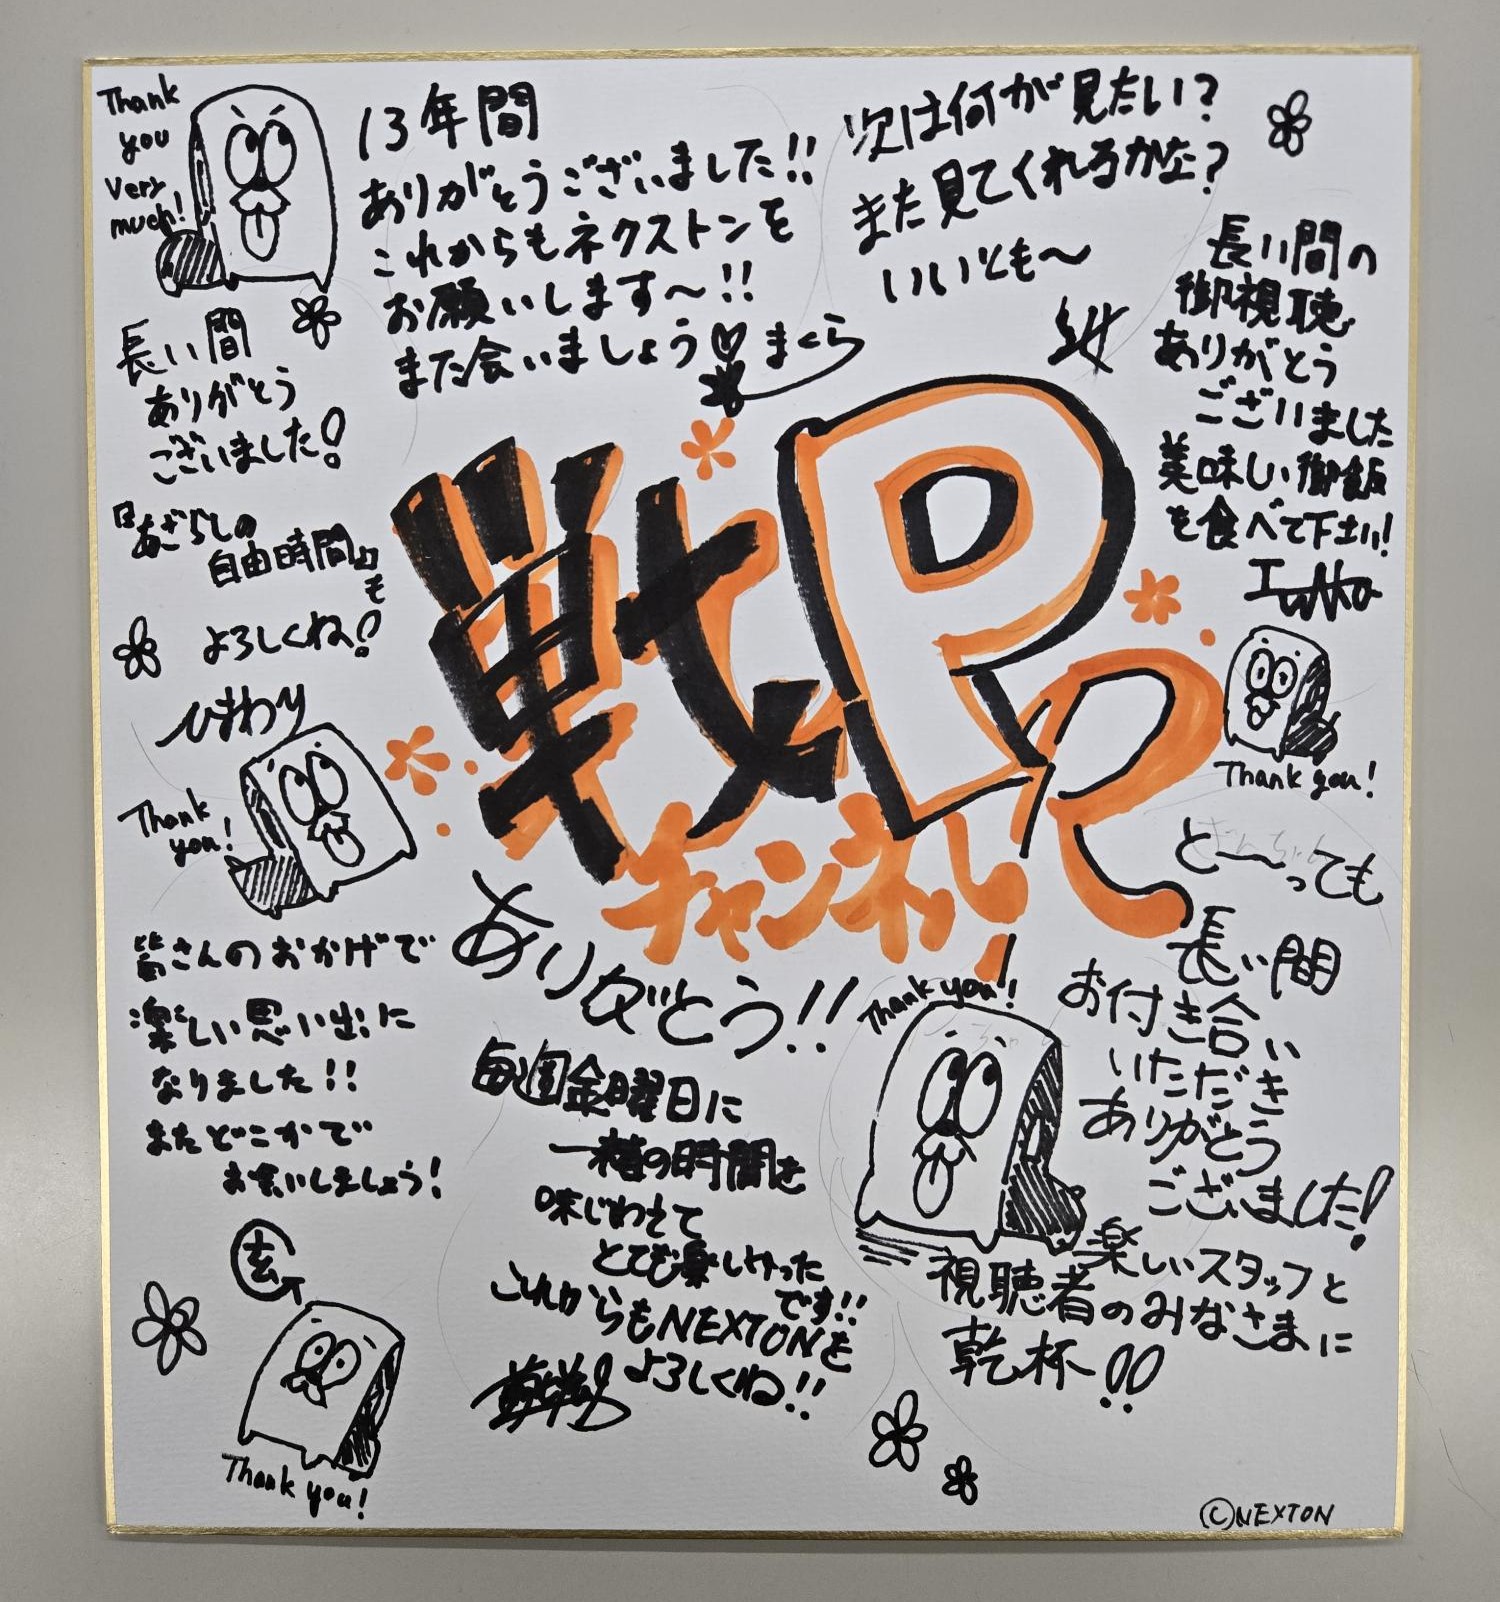 Thank
you
very
much!
13年間
ありがとうございました!!
これからもネクストンを
お願いします〜!!
また会いましょう♡まくら
次は何が見たい?
また見てくれるかな?
いいとも〜
長い間の
御視聴
ありがとう
ございました
美味しい御飯
を食べて下さい!
Thank you!
長い間
ありがとう
ございました!
『あざらしの
自由時間』
も
よろしくね!
ひまわり
Thank
you!
戦P
チャンネル!
ありがとう!!
と〜っても
長い間
お付き合い
いただき
ありがとう
ございました!
楽しいスタッフと
視聴者のみなさまに
乾杯!!
Thank you!
皆さんのおかげで
楽しい思い出に
なりました!!
またどこかで
お会いしましょう!
玄
Thank you!
毎週金曜日に
一楮の時間を
味じわえて
とても楽しかった
です!!
これからもNEXTONを
よろしくね!!
©NEXTON